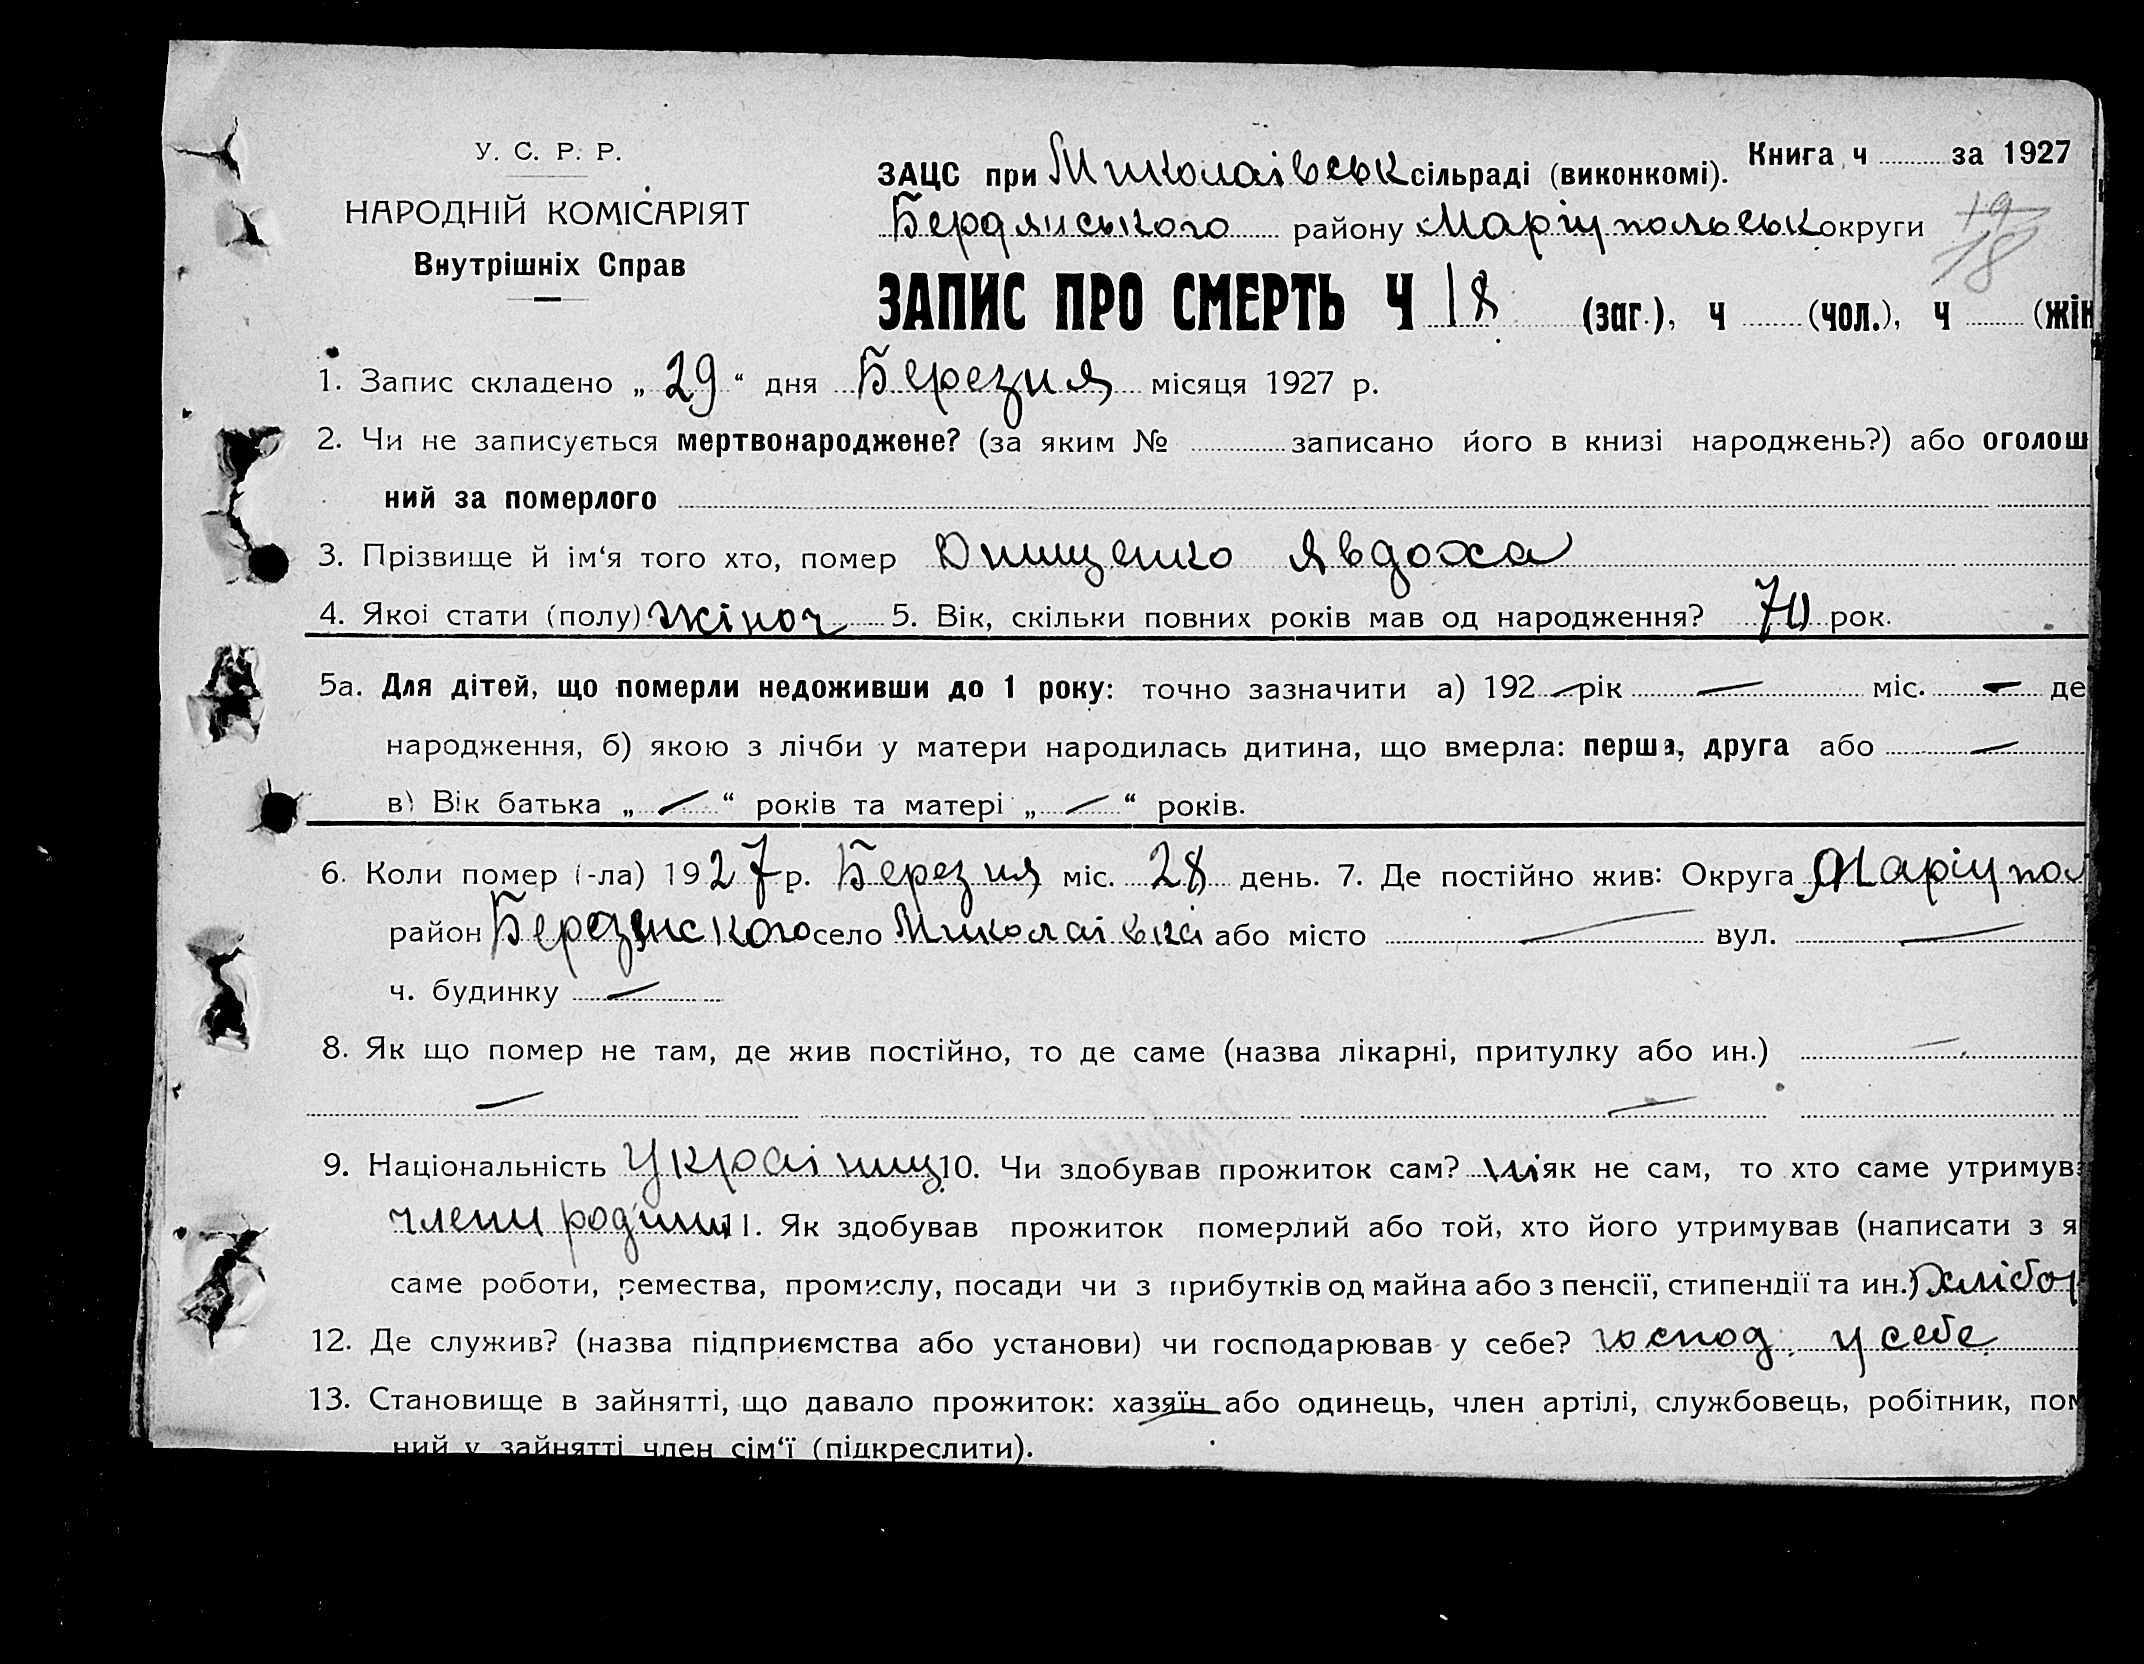 У. С. Р. Р.
НАРОДНІЙ КОМІСАРІЯТ
Внутрішніх Справ
Книга ч за 1927
ЗАЦС при Миколаівськ сільраді (виконкомі).
Бердянського району Маріупольськ округи
19
18
ЗАПИС ПРО СМЕРТЬ Ч 18 (заг.), ч (чол.), ч (жін
1. Запис складено „ 29 “ дня Березня місяця 1927 р.
2. Чи не записується мертвонароджене? (за яким № записано його в книзі народжень?) або оголош
ний за померлого
3. Прізвище й ім‘я того хто, помер Онищенко Явдоха
4. Якоі стати (полу) жіноч 5. Вік, скільки повних років мав од народження? 70 рок.
5а. Для дітей, що померли недоживши до 1 року: точно зазначити а) 192 — рік — міс. — де
народження, б) якою з лічби у матери народилась дитина, що вмерла: перша, друга або —
в) Вік батька „ — “ років та матері „ — “ років.
6. Коли помер (-ла) 1927 р. Березня міс. 28 день. 7. Де постійно жив: Округа Маріупол
район село Миколаівка або місто — вул. —
ч. будинку —
8. Як що помер не там, де жив постійно, то де саме (назва лікарні, притулку або ин.) —
— —
9. Національність 10. Чи здобував прожиток сам? ні як не сам, то хто саме утримува
члени родини 11. Як здобував прожиток померлий або той, хто його утримував (написати з я
саме роботи, ремества, промислу, посади чи з прибутків од майна або з пенсії, стипендії та ин.) Хлібор
12. Де служив? (назва підприємства або установи) чи господарював у себе? господ. у себе
13. Становище в зайнятті, що давало прожиток: хазяїн або одинець, член артілі, службовець, робітник, пом
ний у зайнятті член сім‘ї (підкреслити).